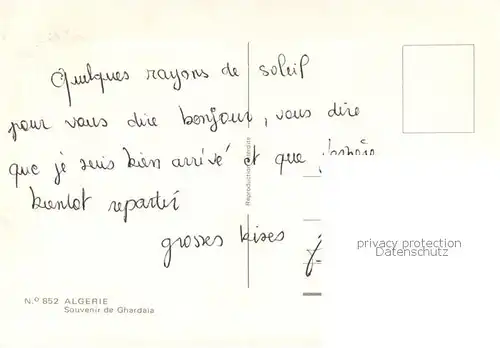 Quelques rayons de soleil
pour vous dire bonjour, vous dire
que je suis bien arrivé et que j'espère
bientot repartir
grosses bises
Reproduction interdite
privacy protection
Datenschutz
N.º 852 ALGERIE
Souvenir de Ghardaia